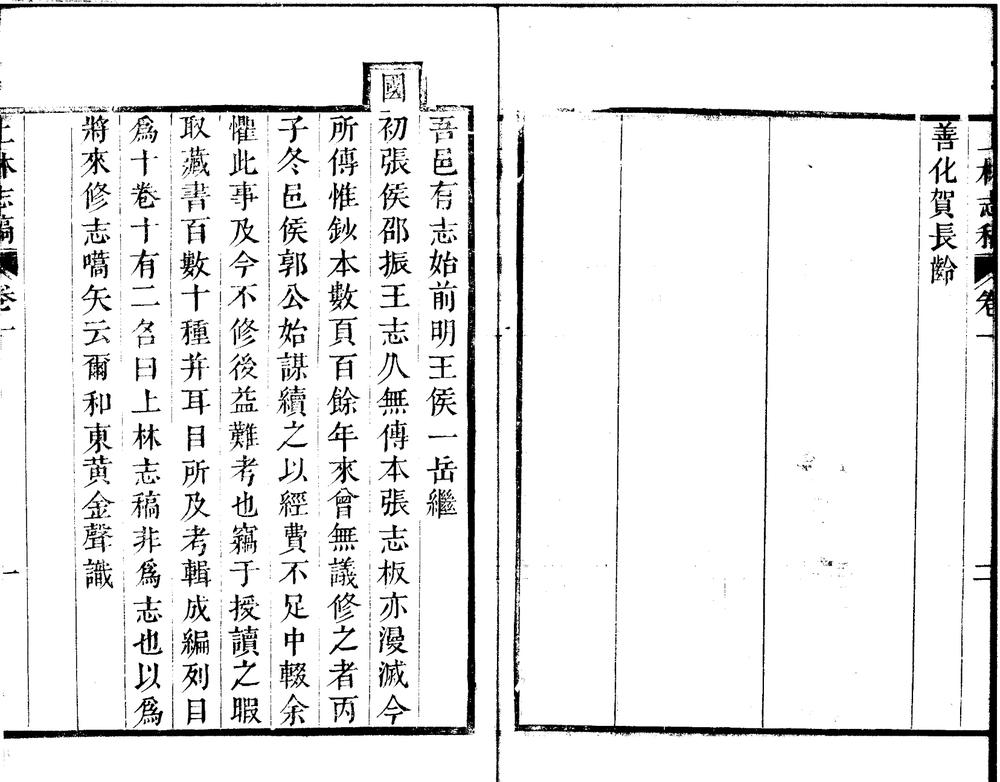 上林志稿 卷一 二
善化賀長齡
吾邑有志始前明王侯一岳繼
國
初張侯邵振王志久無傳本張志板亦漫滅今
所傳惟鈔本數頁百餘年來曾無議修之者丙
子冬邑侯郭公始謀續之以經費不足中輟余
懼此事及今不修後益難考也竊于授讀之暇
取藏書百數十種并耳目所及考輯成編列目
爲十卷十有二名曰上林志稿非爲志也以爲
將來修志嚆矢云爾和東黄金聲識
上林志稿 卷一 一